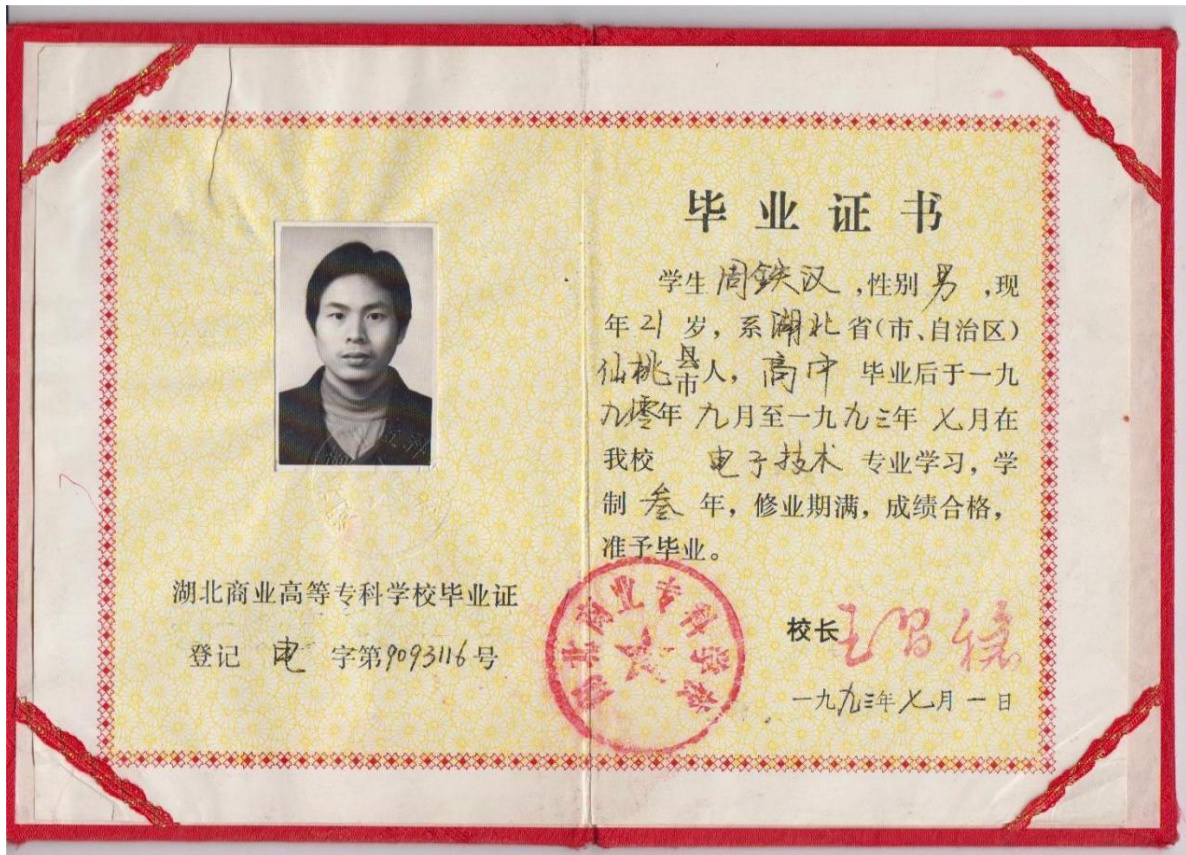 湖北商业高等专科学校毕业证
登记 电 字第9093116号
毕业证书
学生周鉄汉,性别男,现
年21岁,系湖北省(市、自治区)
仙桃县市人,高中毕业后于一九
九零年九月至一九九三年七月在
我校 电子技术 专业学习,学
制叁年,修业期满,成绩合格,
准予毕业。
湖北商业专科学校
校长
一九九三年七月一日